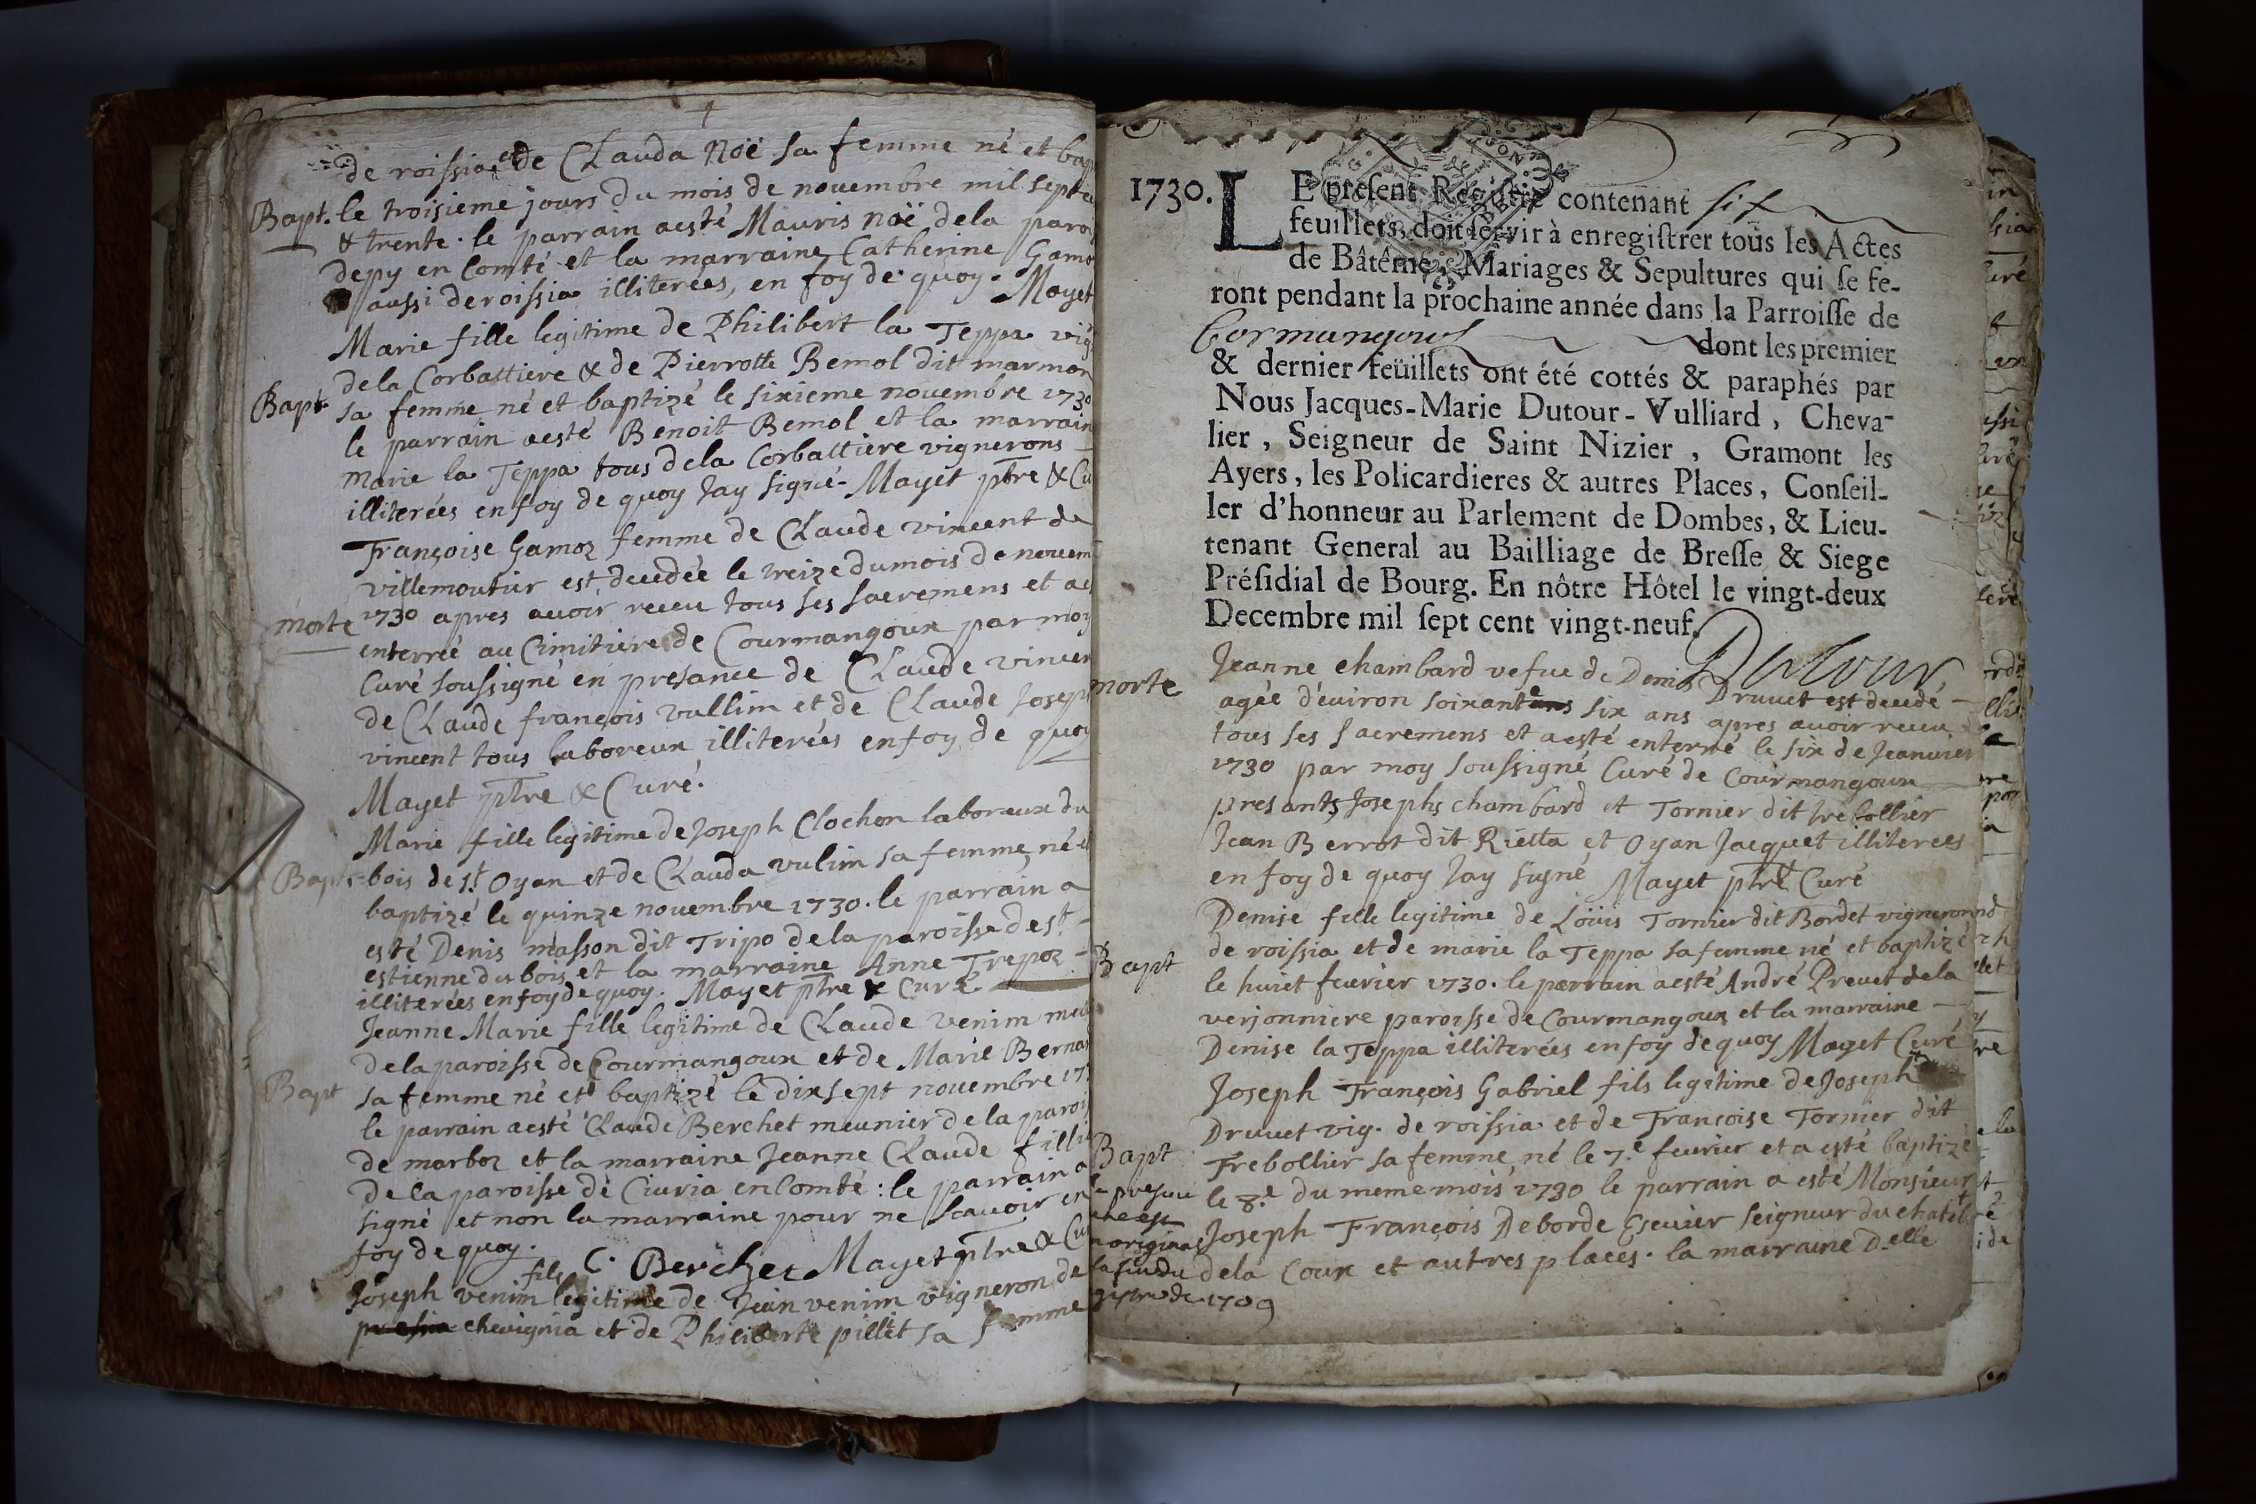 de roissia et de Clauda Noë sa femme né et bap
Bapt. le troisieme jours du mois de novembre mil sept ce
& trente . le parrain aesté Mauris noë dela paroi
depy en Comté et la marraine Catherine Gamo
aussi deroissia illiterées, en foy de quoy . Mayet
Marie fille legitime de Philibert la Teppa vig
dela Corbattiere & de Pierrotte Bemol dit marmon
Bapt sa femme né et baptizé le sixieme novembre 1730
le parrain aesté Benoit Bemol et la marrain
marie la Teppa tous dela Corbattiere vignerons
illiterées en foy de quoy Jay signé - Mayet ptre & Cu
Françoise Gamoz femme de Claude vincent de
villemoutier est decedée le treize dumois de novem
morte 1730 apres avoir receu tous ses sacremens et aes
enterrée au Cimitiere de Courmangoux par moy
Curé soussigné en presance de Claude vincen
de Claude françois vullim et de Claude Joseph
vincent tous laboreux illiterées enfoy de quoy
Mayet ptre & Curé.
Marie fille legitime de Joseph Clochon laboreux du
Bapt. bois de st. Oyan et de Clauda vulim sa femme, né et
baptizé le quinze novembre 1730 . le parrain a
esté Denis masson dit Tripo dela paroisse de st.
estienne du bois et la marraine Anne Trepoz
illiterées enfoy de quoy . Mayet ptre & Curé
Jeanne Marie fille legitime de Claude venim meu
dela paroisse de Courmangoux et de Marie Bernar
Bapt sa femme né et baptizé le dixsept novembre 17
le parrain aesté Claude Berchet meunier dela parois
de marboz et la marraine Jeanne Claude fillie
dela paroisse de Civria en Comté : le parrain a
signé et non la marraine pour ne scavoir en
foy de quoy .
C. Berchet Mayet ptre & Cu
Joseph venim fils legitime de Jean venim vigneron de
chevignia et de Philiberte pillet sa femme
1730. LE present Registre contenant six
feuillets, doit servir à enregistrer tous les Actes
de Bâtême, Mariages & Sepultures qui se fe-
ront pendant la prochaine année dans la Parroisse de
Cormangoux dont les premier
& dernier feüillets ont été cottés & paraphés par
Nous Jacques-Marie Dutour-Vulliard, Cheva-
lier, Seigneur de Saint Nizier, Gramont les
Ayers, les Policardieres & autres Places, Conseil-
ler d'honneur au Parlement de Dombes, & Lieu-
tenant General au Bailliage de Bresse & Siege
Présidial de Bourg. En nôtre Hôtel le vingt-deux
Decembre mil sept cent vingt-neuf.
Dutour
morte Jeanne chambard vefue de Denis Druuet est decedé
agée d'éuiron soixante six ans apres auoir receu
tous ses sacremens et aesté enterré le six de Jeanvier
1730 par moy soussigné Curé de Courmangoux
presants Josephs chambard et Tornier dit trebollier
Jean Berrot dit Rietta et Oyan Jacquet illiterees
en foy de quoy Jay signé Mayet ptre Curé
Denise fille legitime de Loüis Tornier dit Bordet vigneron
de roissia et de marie la Teppa sa femme né et baptizé
Bapt le huict feurier 1730 . le parrain aesté André Preuet dela
verjonniere paroisse de Courmangoux et la marraine
Denise la Teppa illiterées en foy de quoy Mayet Curé
Joseph François Gabriel fils legitime de Joseph
Druuet vig. de roissia et de Françoise Tornier dit
Bapt Frebollier sa femme né le 7.e feurier et a esté baptizé
le 8.e du meme mois 1730 le parrain a esté Monsieur
Joseph François Deborde Escuier seigneur du chatel
dela Coux et autres places . la marraine Delle